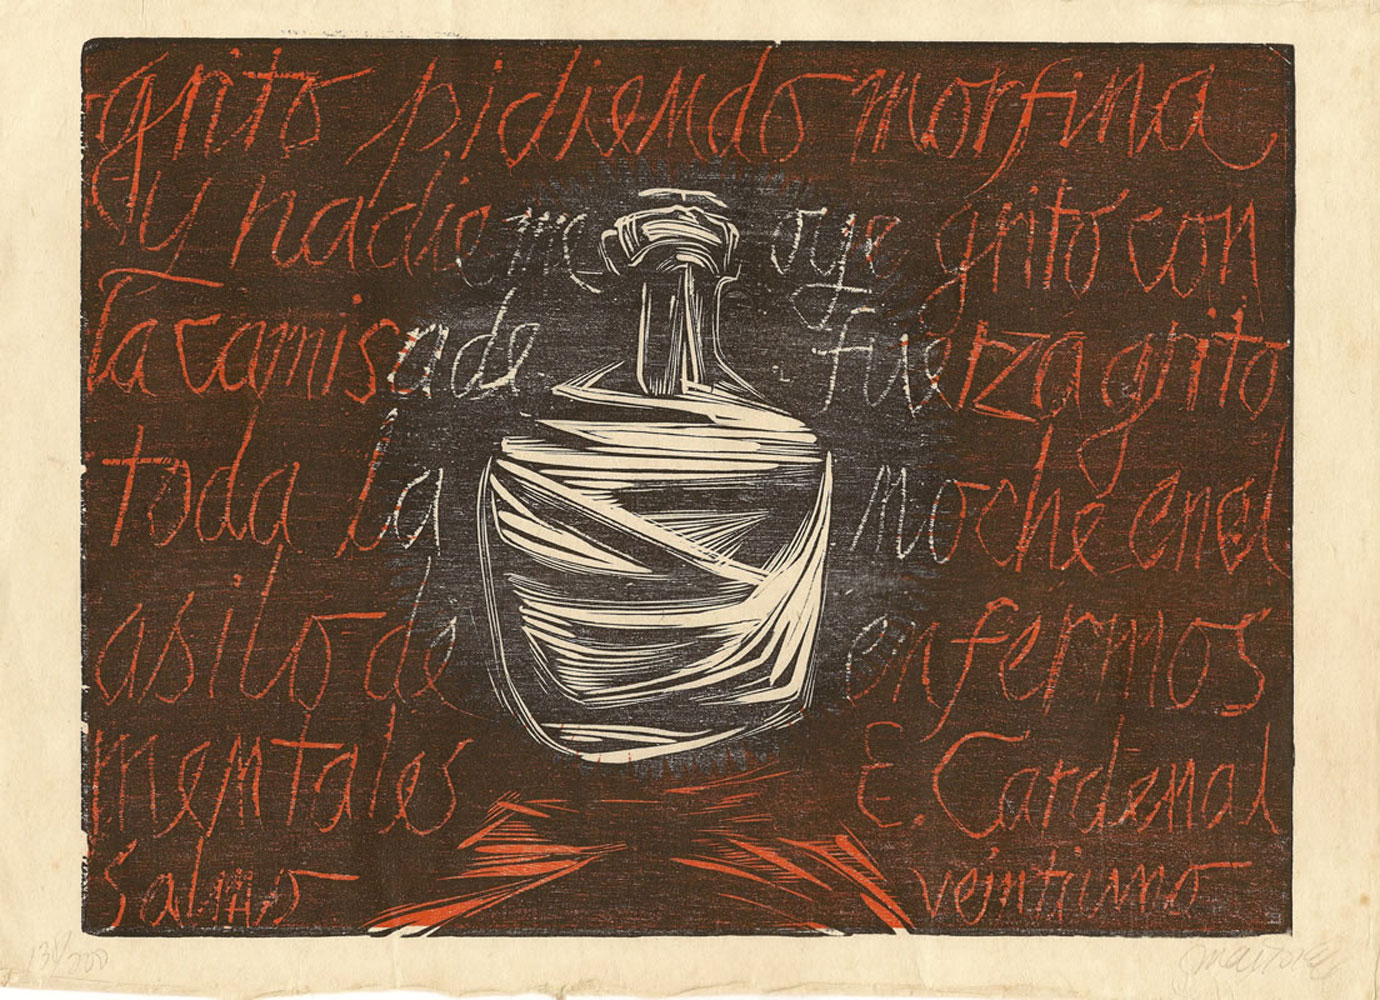 grito pidiendo morfina
y nadie me oye grito con
la camisa de fuerza grito
toda la noche en el
asilo de enfermos
mentales E. Cardenal
Salmo veintiuno
/200